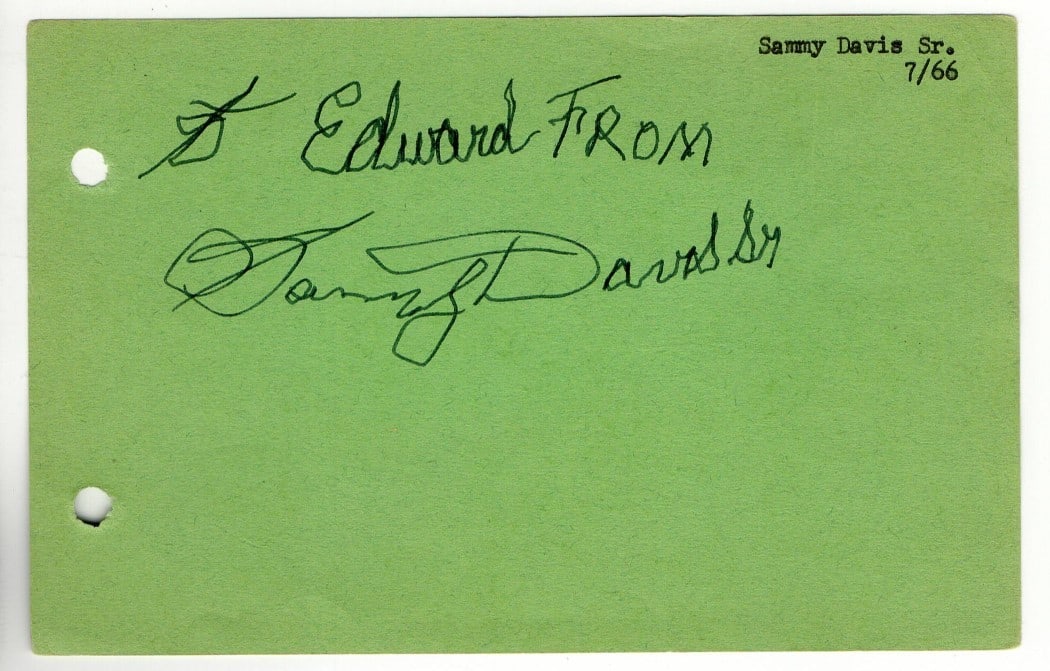 Sammy Davis Sr.
7/66
To Edward FROM
Sammy Davis Sr